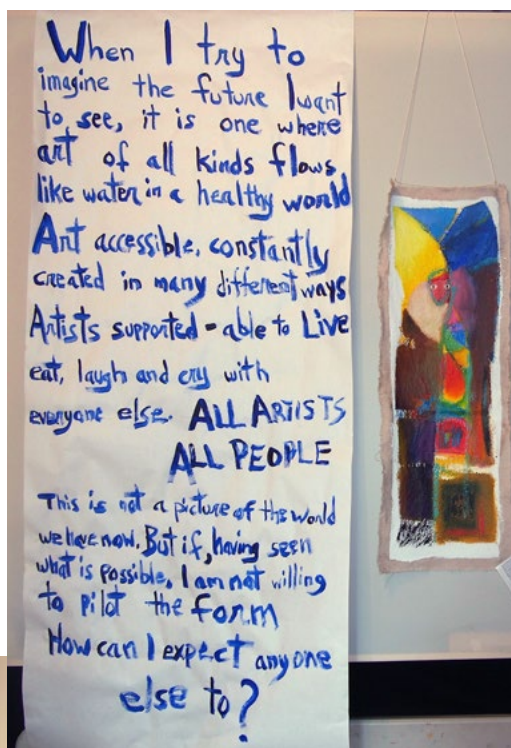 When I try to
imagine the future I want
to see, it is one where
art of all kinds flows
like water in a healthy world
Art accessible, constantly
created in many different ways
Artists supported - able to Live
eat, laugh and cry with
everyone else. ALL ARTISTS
ALL PEOPLE
This is not a picture of the world
we have now. But if, having seen
what is possible, I am not willing
to pilot the form
How can I expect anyone
else to?